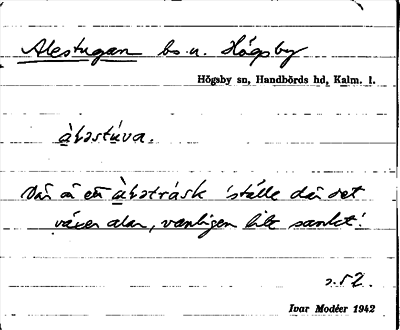 Alestugan bs. u. Högsby
Högsby sn, Handbörds hd, Kalm. l.
àləstúva.
Där är ett àlətrásk 'ställe där det
växer alar, vanligen lite sankt'.
s. 52.
Ivar Modéer 1942